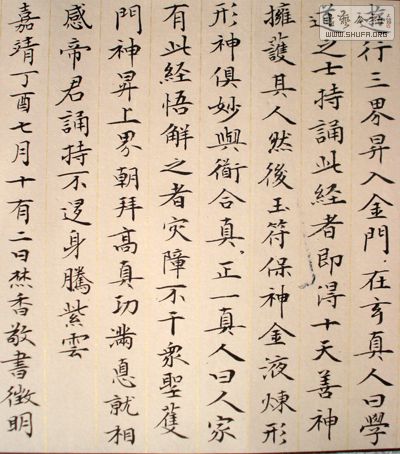 遊行三界昇入金門。在玄真人曰學
道之士持誦此經者即得十天善神
擁護其人然後玉符保神金液煉形
形神俱妙與衜合真。正一真人曰人家
有此経悟解之者灾障不干衆聖護
門神昇上界朝拜髙真功满惪就相
感帝君誦持不退身騰紫雲
嘉靖丁酉七月十有二日焚香敬書徵明
WWW.SHUFA.ORG